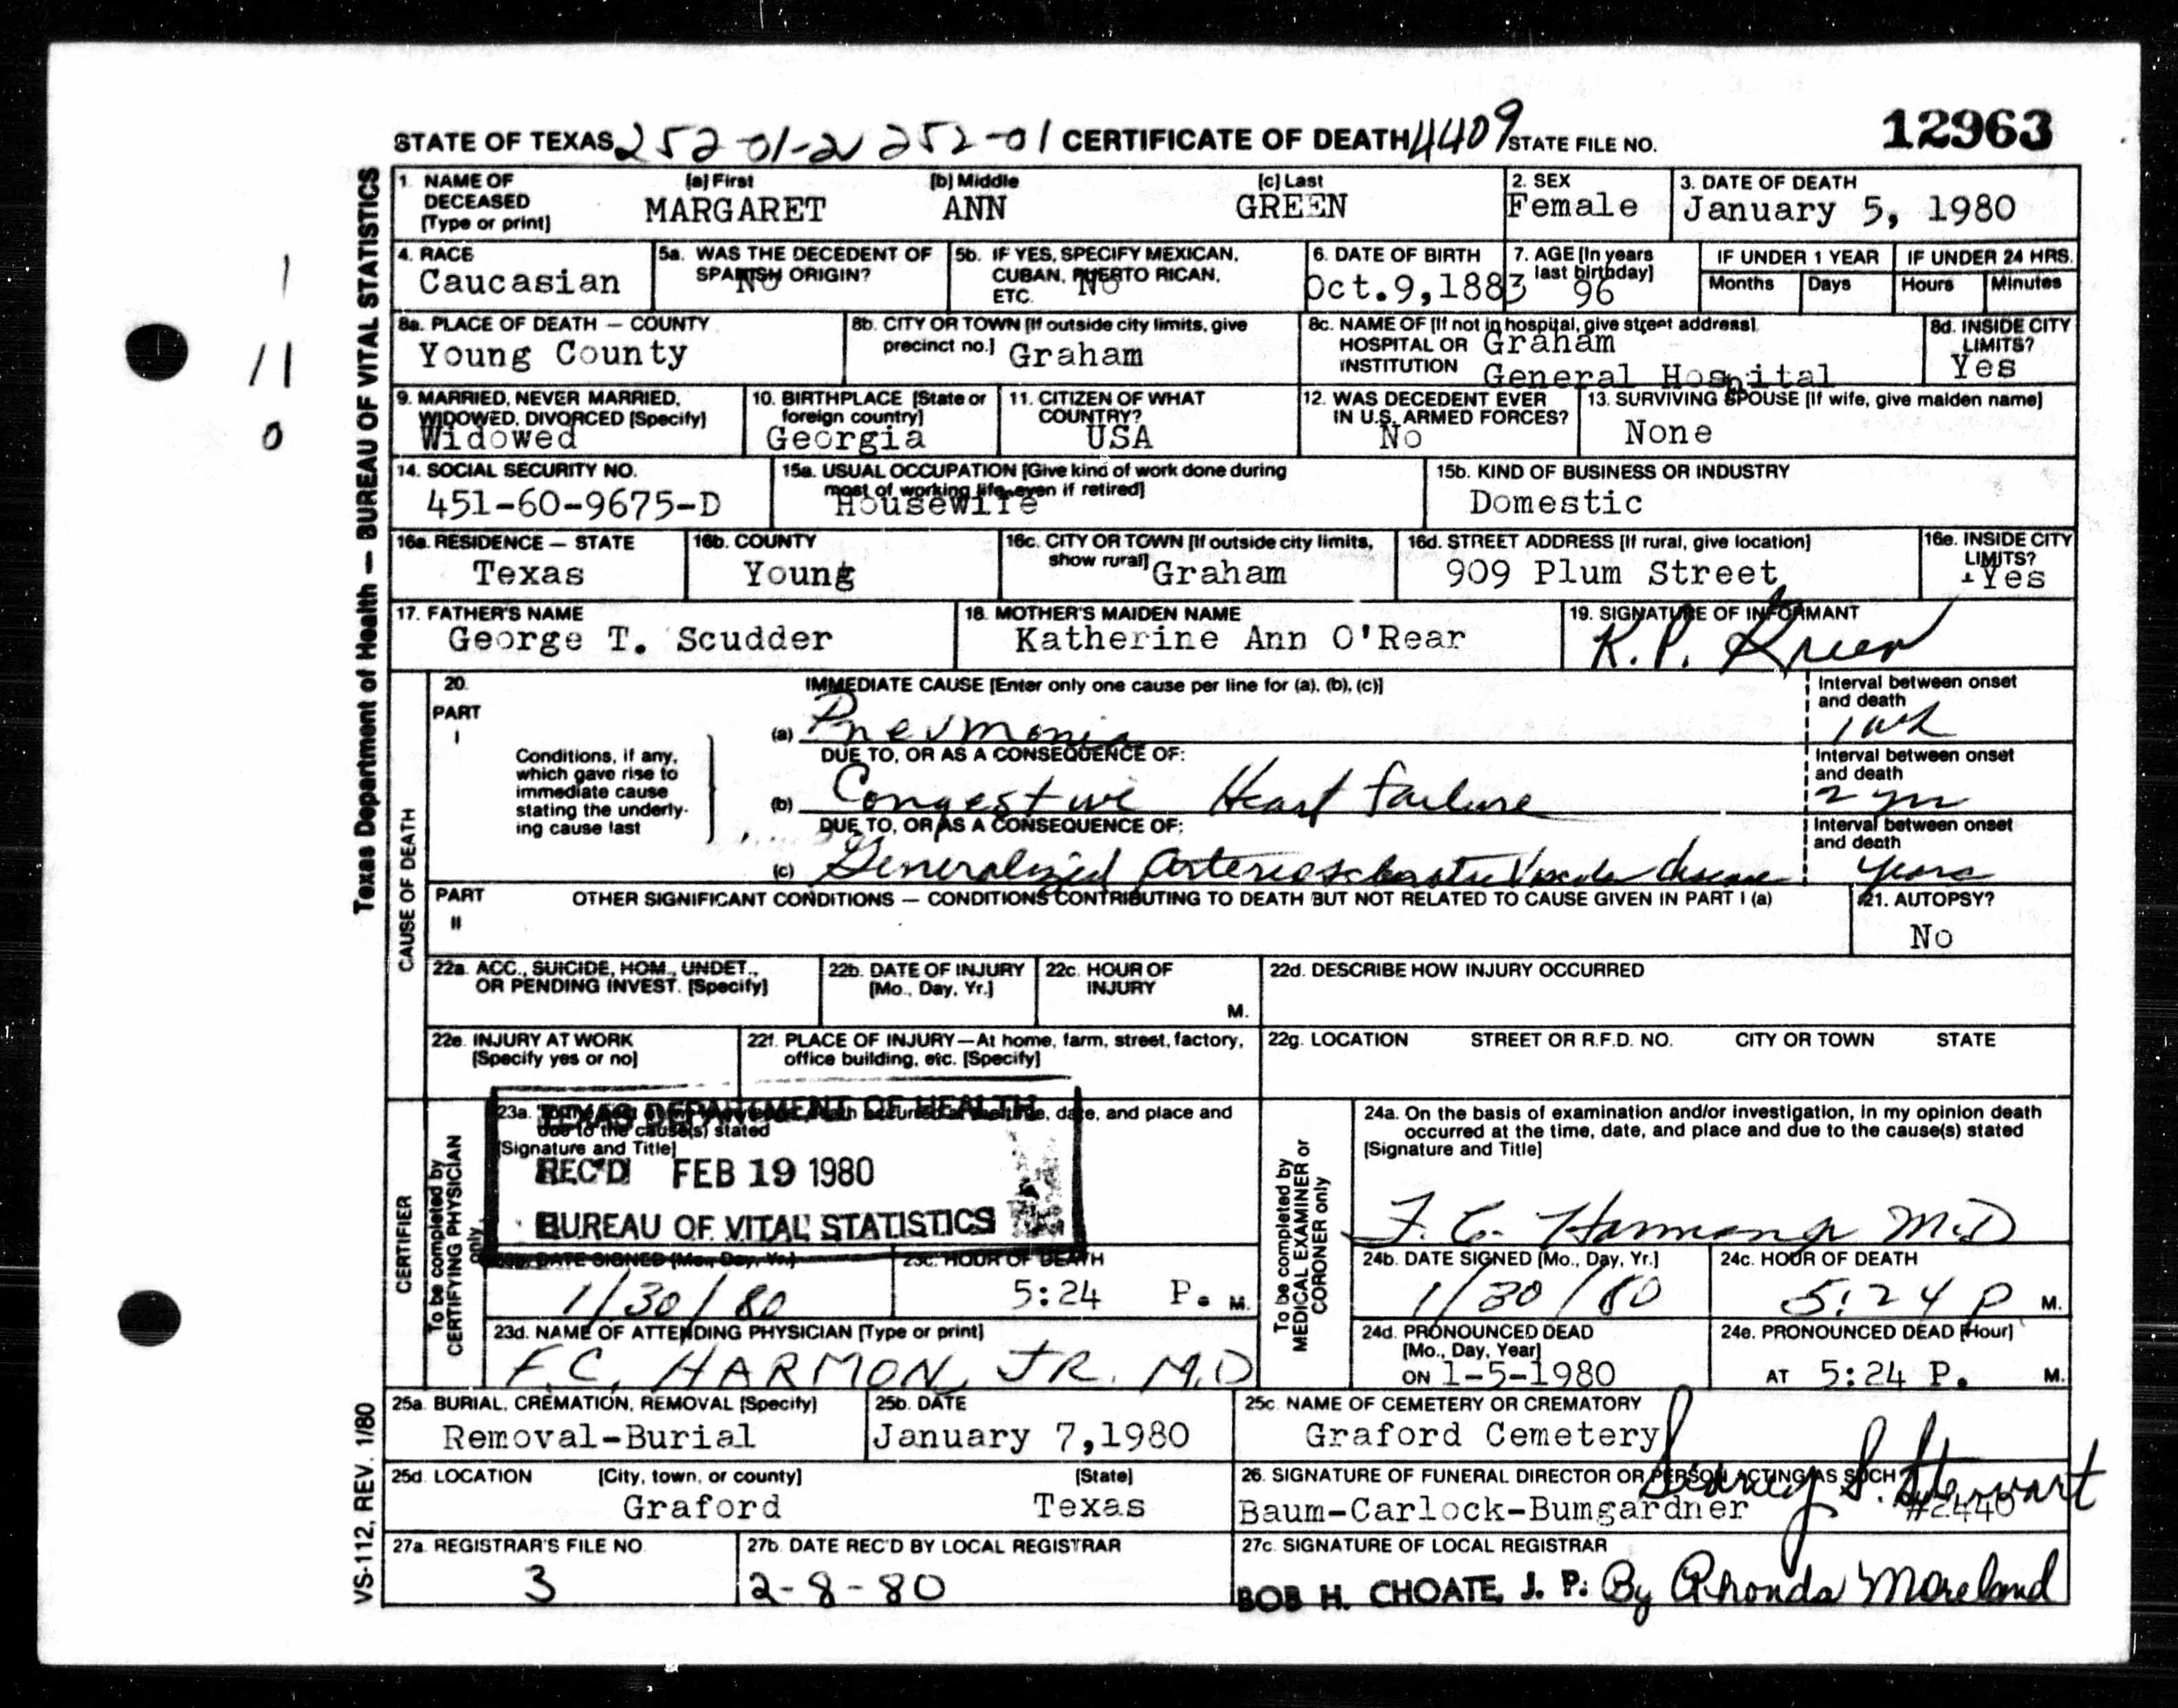 STATE OF TEXAS 252-01-2 252-01 CERTIFICATE OF DEATH 4409 STATE FILE NO. 12963
Texas Department of Health — BUREAU OF VITAL STATISTICS
1. NAME OF DECEASED [Type or print] [a] First MARGARET [b] Middle ANN [c] Last GREEN
2. SEX Female
3. DATE OF DEATH January 5, 1980
4. RACE Caucasian
5a. WAS THE DECEDENT OF SPANISH ORIGIN? No
5b. IF YES, SPECIFY MEXICAN, CUBAN, PUERTO RICAN, ETC. No
6. DATE OF BIRTH Oct.9,1883
7. AGE [In years last birthday] 96
IF UNDER 1 YEAR Months Days
IF UNDER 24 HRS. Hours Minutes
1
11
0
8a. PLACE OF DEATH — COUNTY Young County
8b. CITY OR TOWN [If outside city limits, give precinct no.] Graham
8c. NAME OF [If not in hospital, give street address] HOSPITAL OR INSTITUTION Graham General Hospital
8d. INSIDE CITY LIMITS? Yes
9. MARRIED, NEVER MARRIED, WIDOWED, DIVORCED [Specify] Widowed
10. BIRTHPLACE [State or foreign country] Georgia
11. CITIZEN OF WHAT COUNTRY? USA
12. WAS DECEDENT EVER IN U.S. ARMED FORCES? No
13. SURVIVING SPOUSE [If wife, give maiden name] None
14. SOCIAL SECURITY NO. 451-60-9675-D
15a. USUAL OCCUPATION [Give kind of work done during most of working life, even if retired] Housewife
15b. KIND OF BUSINESS OR INDUSTRY Domestic
16a. RESIDENCE — STATE Texas
16b. COUNTY Young
16c. CITY OR TOWN [If outside city limits, show rural] Graham
16d. STREET ADDRESS [If rural, give location] 909 Plum Street
16e. INSIDE CITY LIMITS? Yes
17. FATHER'S NAME George T. Scudder
18. MOTHER'S MAIDEN NAME Katherine Ann O'Rear
19. SIGNATURE OF INFORMANT K.P. Green
CAUSE OF DEATH
20. PART I IMMEDIATE CAUSE [Enter only one cause per line for (a), (b), (c)]
Conditions, if any, which gave rise to immediate cause stating the underlying cause last
(a) Pneumonia Interval between onset and death 1 wk
DUE TO, OR AS A CONSEQUENCE OF:
(b) Congestive Heart failure Interval between onset and death 2 yrs
DUE TO, OR AS A CONSEQUENCE OF:
(c) Generalized Arteriosclerotic Vascular disease Interval between onset and death years
PART II OTHER SIGNIFICANT CONDITIONS — CONDITIONS CONTRIBUTING TO DEATH BUT NOT RELATED TO CAUSE GIVEN IN PART I (a)
21. AUTOPSY? No
22a. ACC., SUICIDE, HOM., UNDET., OR PENDING INVEST. [Specify]
22b. DATE OF INJURY [Mo., Day, Yr.]
22c. HOUR OF INJURY M.
22d. DESCRIBE HOW INJURY OCCURRED
22e. INJURY AT WORK [Specify yes or no]
22f. PLACE OF INJURY—At home, farm, street, factory, office building, etc. [Specify]
22g. LOCATION STREET OR R.F.D. NO. CITY OR TOWN STATE
CERTIFIER
To be completed by CERTIFYING PHYSICIAN only
23a. date, and place and due to the cause(s) stated
[Signature and Title]
TEXAS DEPARTMENT OF HEALTH
REC'D FEB 19 1980
BUREAU OF VITAL STATISTICS
23b. DATE SIGNED [Mo., Day, Yr.] 1/30/80
23c. HOUR OF DEATH 5:24 P. M.
23d. NAME OF ATTENDING PHYSICIAN [Type or print] F.C. HARMON, JR. M.D
To be completed by MEDICAL EXAMINER or CORONER only
24a. On the basis of examination and/or investigation, in my opinion death occurred at the time, date, and place and due to the cause(s) stated
[Signature and Title]
F. C. Harmon Jr M.D
24b. DATE SIGNED [Mo., Day, Yr.] 1/30/80
24c. HOUR OF DEATH 5:24 P M.
24d. PRONOUNCED DEAD [Mo., Day, Year] ON 1-5-1980
24e. PRONOUNCED DEAD [Hour] AT 5:24 P. M.
25a. BURIAL, CREMATION, REMOVAL [Specify] Removal-Burial
25b. DATE January 7,1980
25c. NAME OF CEMETERY OR CREMATORY Graford Cemetery
25d. LOCATION [City, town, or county] Graford [State] Texas
26. SIGNATURE OF FUNERAL DIRECTOR OR PERSON ACTING AS SUCH S. Stewart
Baum-Carlock-Bumgardner #2440
27a. REGISTRAR'S FILE NO. 3
27b. DATE REC'D BY LOCAL REGISTRAR 2-8-80
27c. SIGNATURE OF LOCAL REGISTRAR
BOB H. CHOATE, J. P: By Rhonda Moreland
VS-112, REV. 1/80